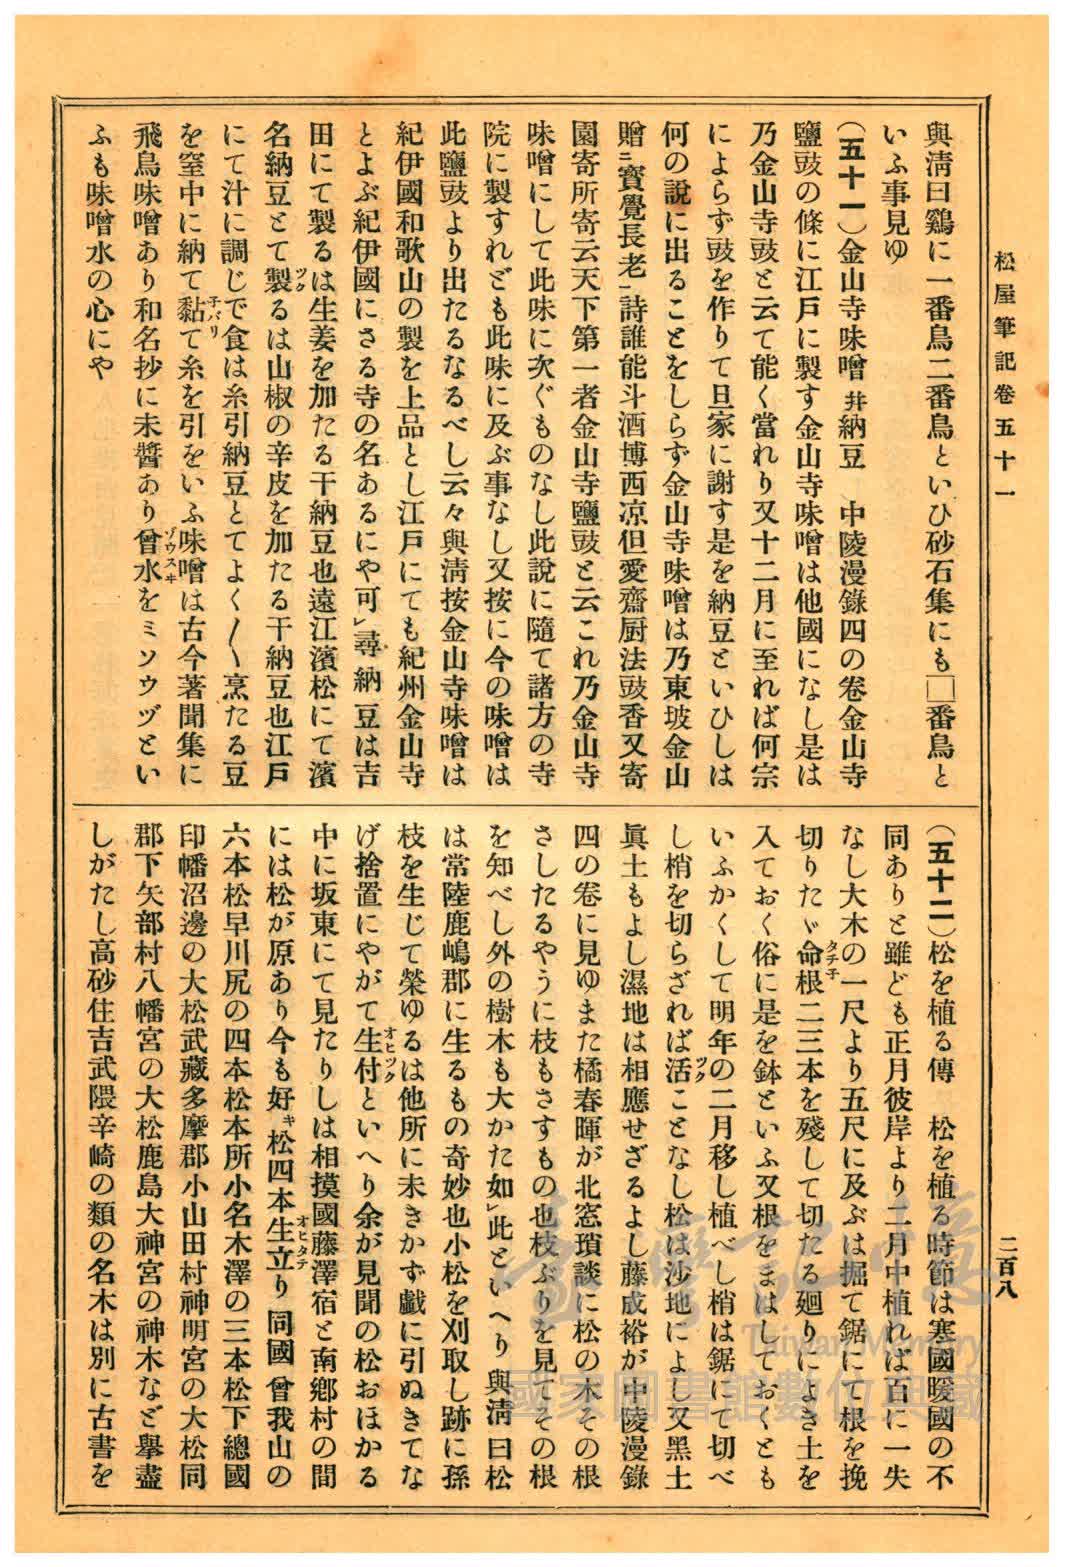 松屋筆記卷五十一
二百八
與淸曰鷄に一番鳥二番鳥といひ砂石集にも□番鳥と
いふ事見ゆ
（五十一）金山寺味噌幷納豆　中陵漫錄四の卷金山寺
鹽豉の條に江戸に製す金山寺味噌は他國になし是は
乃金山寺豉と云て能く當れり又十二月に至れば何宗
によらず豉を作りて旦家に謝す是を納豆といひしは
何の說に出ることをしらず金山寺味噌は乃東坡金山
贈ニ寳覺長老一詩誰能斗酒博西凉但愛齋厨法豉香又寄
園寄所寄云天下第一者金山寺鹽豉と云これ乃金山寺
味噌にして此味に次ぐものなし此說に隨て諸方の寺
院に製すれども此味に及ぶ事なし又按に今の味噌は
此鹽豉より出たるなるべし云々與淸按金山寺味噌は
紀伊國和歌山の製を上品とし江戸にても紀州金山寺
とよぶ紀伊國にさる寺の名あるにや可」尋納豆は吉
田にて製るは生姜を加たる干納豆也遠江濱松にて濱
名納豆とて製るは山椒の辛皮を加たる干納豆也江戸
にて汁に調じて食は糸引納豆とてよく〱烹たる豆
を窒中に納て黏て糸を引をいふ味噌は古今著聞集に
飛鳥味噌あり和名抄に未醬あり曾水をミソウヅとい
ふも味噌水の心にや
（五十二）松を植る傳　松を植る時節は寒國暖國の不
同ありと雖ども正月彼岸より二月中植れば百に一失
なし大木の一尺より五尺に及ぶは掘て鋸にて根を挽
切りたヾ命根二三本を殘して切たる廻りによき土を
入ておく俗に是を鉢といふ又根をまはしておくとも
いふかくして明年の二月移し植べし梢は鋸にて切べ
し梢を切らざれば活ことなし松は沙地によし又黑土
眞土もよし濕地は相應せざるよし藤成裕が中陵漫錄
四の卷に見ゆまた橘春暉が北窓瑣談に松の木その根
さしたるやうに枝もさすもの也枝ぶりを見てその根
を知べし外の樹木も大かた如」此といへり與淸曰松
は常陸鹿嶋郡に生るもの奇妙也小松を刈取し跡に孫
枝を生じて榮ゆるは他所に未きかず戲に引ぬきてな
げ捨置にやがて生付といへり余が見聞の松おほかる
中に坂東にて見たりしは相摸國藤澤宿と南鄕村の間
には松が原あり今も好キ松四本生立り同國曾我山の
六本松早川尻の四本松本所小名木澤の三本松下總國
印幡沼邊の大松武藏多摩郡小山田村神明宮の大松同
郡下矢部村八幡宮の大松鹿島大神宮の神木など擧盡
しがたし高砂住吉武隈辛崎の類の名木は別に古書を
臺灣記憶
Taiwan Memory
國家圖書館數位典藏